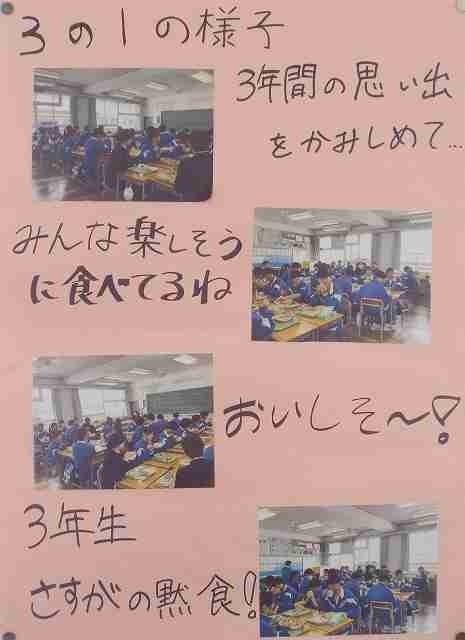 3の1の様子
3年間の思い出
をかみしめて...
みんな楽しそう
に食べてるね
おいしそ～!
3年生
さすがの黙食!